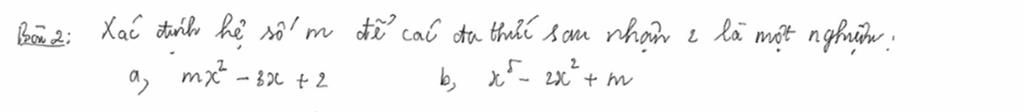 Bài 2: Xác định hệ số m để các đa thức sau nhận 2 là một nghiệm:
a, mx² - 3x + 2 b, x⁵ - 2x² + m